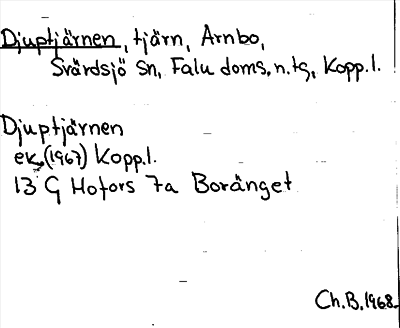 Djuptjärnen, tjärn, Arnbo,
Svärdsjö sn, Falu doms. n. tg, Kopp. l.
Djuptjärnen
ek. (1967) Kopp. l.
13 G Hofors 7a Boränget
Ch. B. 1968.